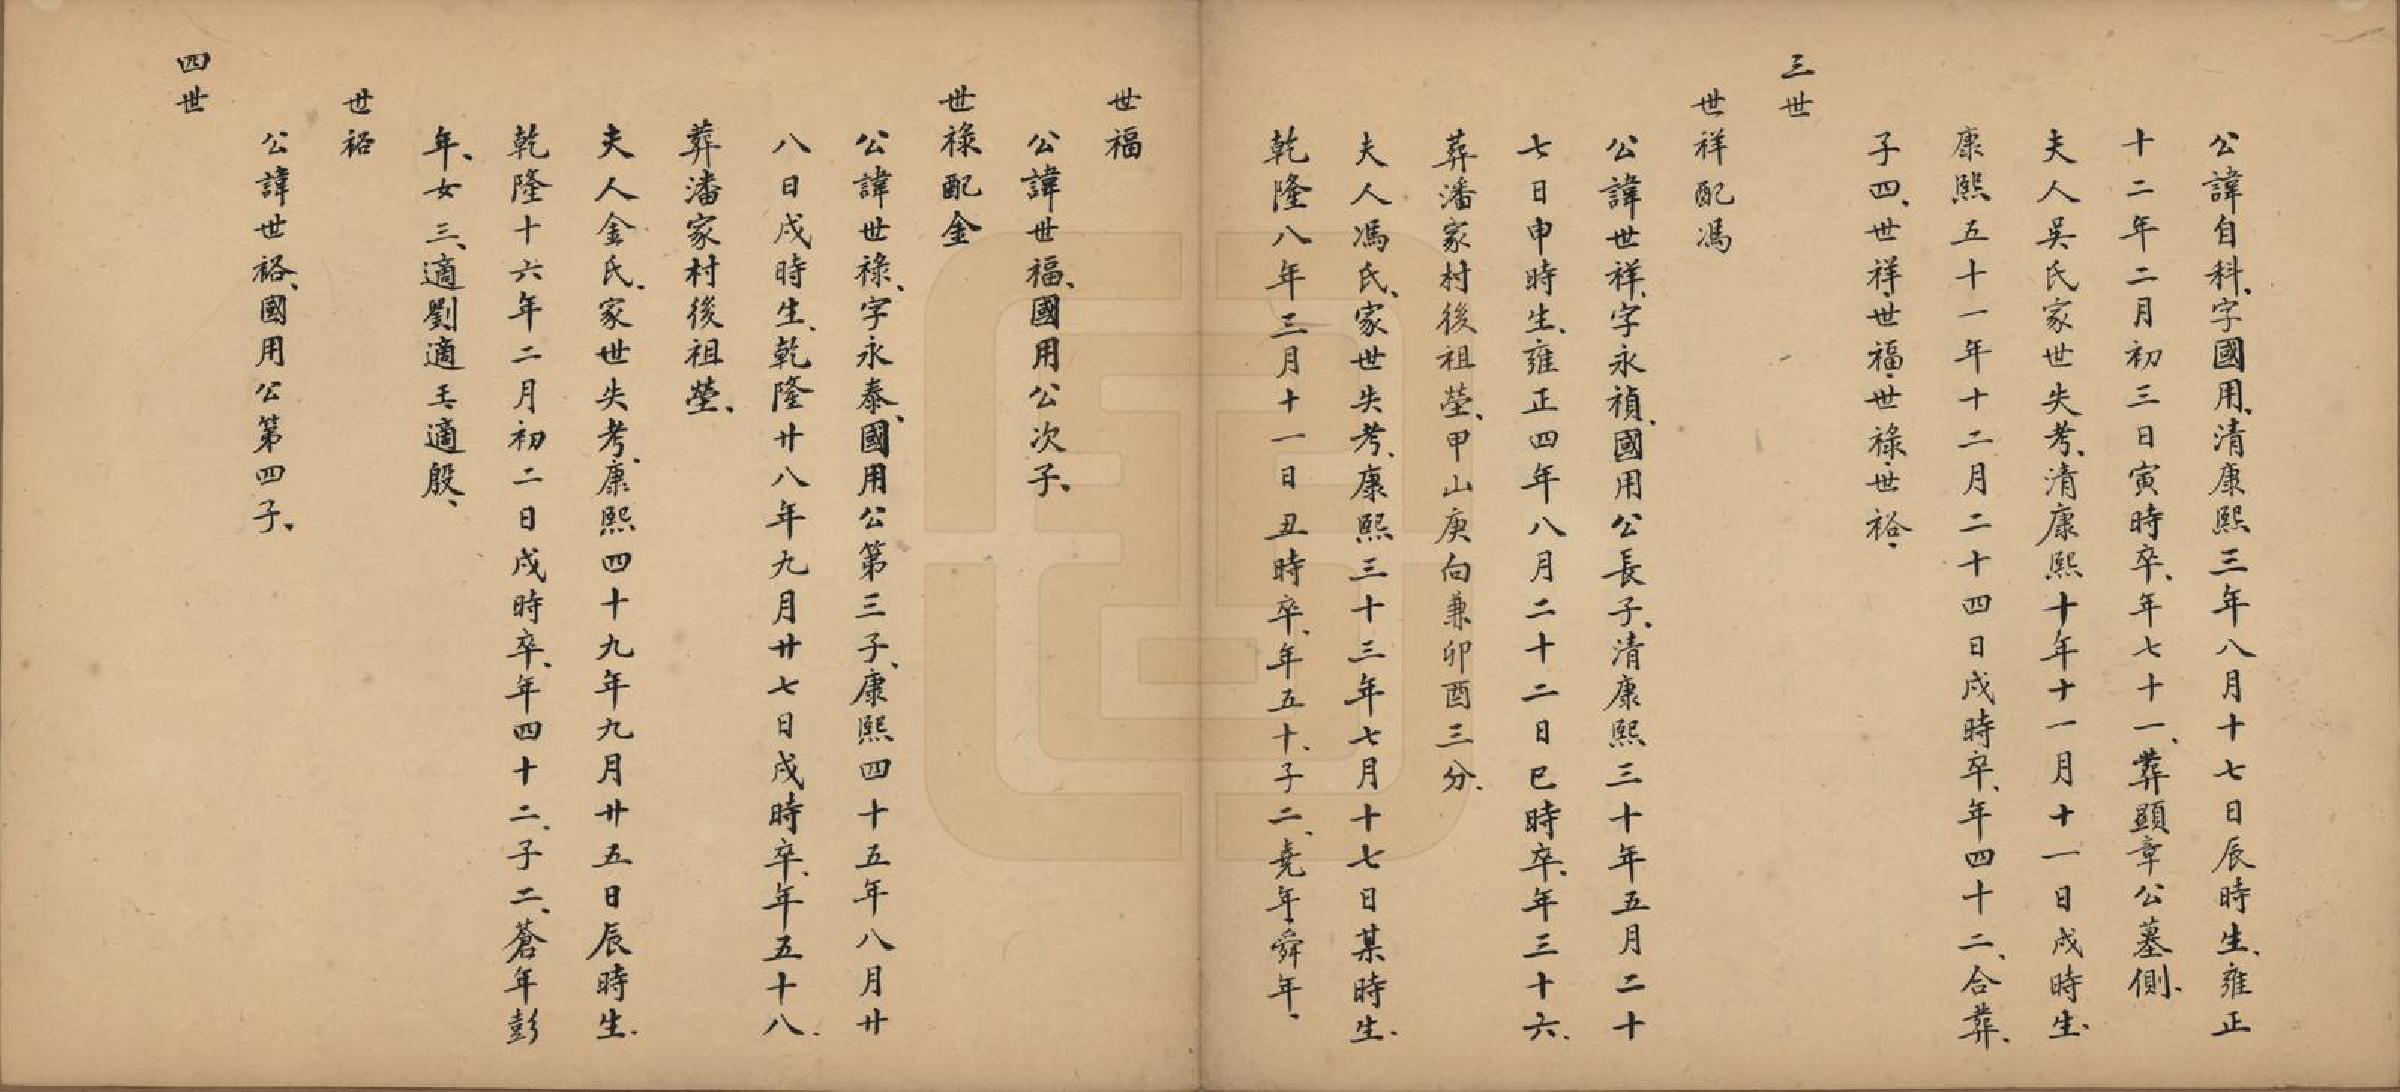 公諱自科、字國用、清康熙三年八月十七日辰時生、雍正
十二年二月初三日寅時卒、年七十一、葬顯章公墓側、
夫人吳氏家世失考、清康熙十年十一月十一日戌時生、
康熙五十一年十二月二十四日戌時卒、年四十二、合葬、
子四、世祥、世福、世祿、世裕、
三世
世祥配馮
公諱世祥、字永禎、國用公長子、清康熙三十年五月二十
七日申時生、雍正四年八月二十二日巳時卒、年三十六、
葬潘家村後祖塋、甲山庚向兼卯酉三分、
夫人馮氏、家世失考、康熙三十三年七月十七日某時生、
乾隆八年三月十一日丑時卒、年五十、子二、堯年、舜年、
世福
公諱世福、國用公次子、
世祿配金
公諱世祿、字永泰、國用公第三子、康熙四十五年八月廿
八日戌時生、乾隆廿八年九月廿七日戌時卒、年五十八、
葬潘家村後祖塋、
夫人金氏、家世失考、康熙四十九年九月廿五日辰時生、
乾隆十六年二月初二日戌時卒、年四十二、子二、蒼年彭
年、女三、適劉適王適殷、
世裕
公諱世裕、國用公第四子、
四世